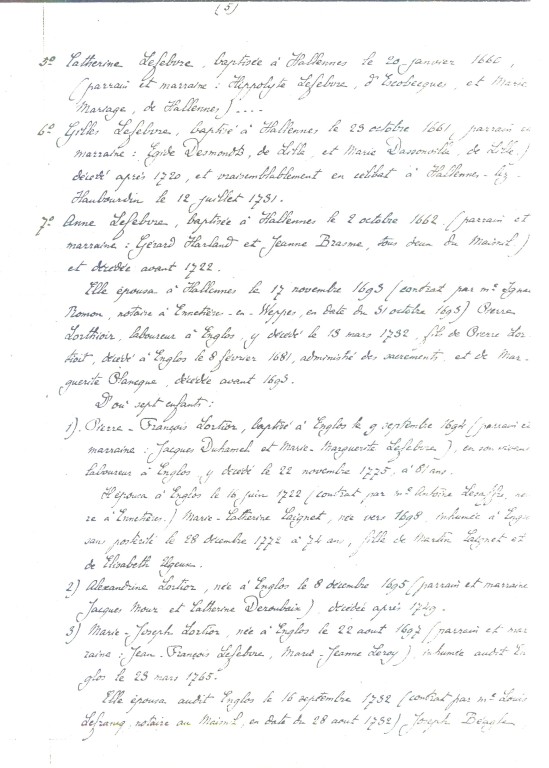 (5)
5º Catherine Lefebvre, baptisée à Hallennes le 20 janvier 1660,
(parrain et marraine : Hippolyte Lefebvre, d'Escobecques, et Marie
Marsage, de Hallennes) ....
6º Gilles Lefebvre, baptisé à Hallennes le 23 octobre 1661, parrain et
marraine : Egide Desmondts, de Lille, et Marie Dassonville, de Lille)
décédé après 1720, et vraisemblablement en célibat à Hallennes-lez-
Haubourdin le 12 juillet 1731.
7º Anne Lefebvre, baptisée à Hallennes le 2 octobre 1662 (parrain et
marraine : Gérard Harland et Jeanne Brasme, tous deux du Maisnil)
et décédée avant 1722.
Elle épousa à Hallennes le 17 novembre 1693 (contrat par mº Ignace
Romon, notaire à Ennetières-en-Weppes, en date du 31 octobre 1693) Pierre
Lorthioir, laboureur à Englos, y décédé le 13 mars 1732, fils de Pierre Lor-
tioit, décédé à Englos le 8 février 1681, administré des sacrements, et de Mar-
guerite Plancque, décédée avant 1693.
D'où sept enfants :
1). Pierre-François Lortior, baptisé à Englos le 9 septembre 1694 (parrain et
marraine : Jacques Duhamel et Marie-Marguerite Lefebvre), en son vivant
laboureur à Englos, y décédé le 22 novembre 1775, à 81 ans.
Il épousa à Englos le 16 juin 1722 (contrat, par mº Antoine Lesaffre, no-
re à Ennetières.) Marie-Catherine Laignel, née vers 1698, inhumée à Englos
sans postérité le 28 décembre 1772 à 74 ans, fille de Martin Laignel et
de Elisabeth
2) Alexandrine Lortior, née à Englos le 8 décembre 1695 (parrain et marraine
Jacques Mour et Catherine Deroubaix), décédée après 1749.
3) Marie-Joseph Lortior, née à Englos le 22 aout 1697 (parrain et mar-
raine : Jean-François Lefebvre, Marie-Jeanne Leroy), inhumée audit En-
glos le 23 mars 1765.
Elle épousa audit Englos le 16 septembre 1732 (contrat par mº Louis
Lefrancq, notaire au Maisnil, en date du 28 aout 1732) Joseph